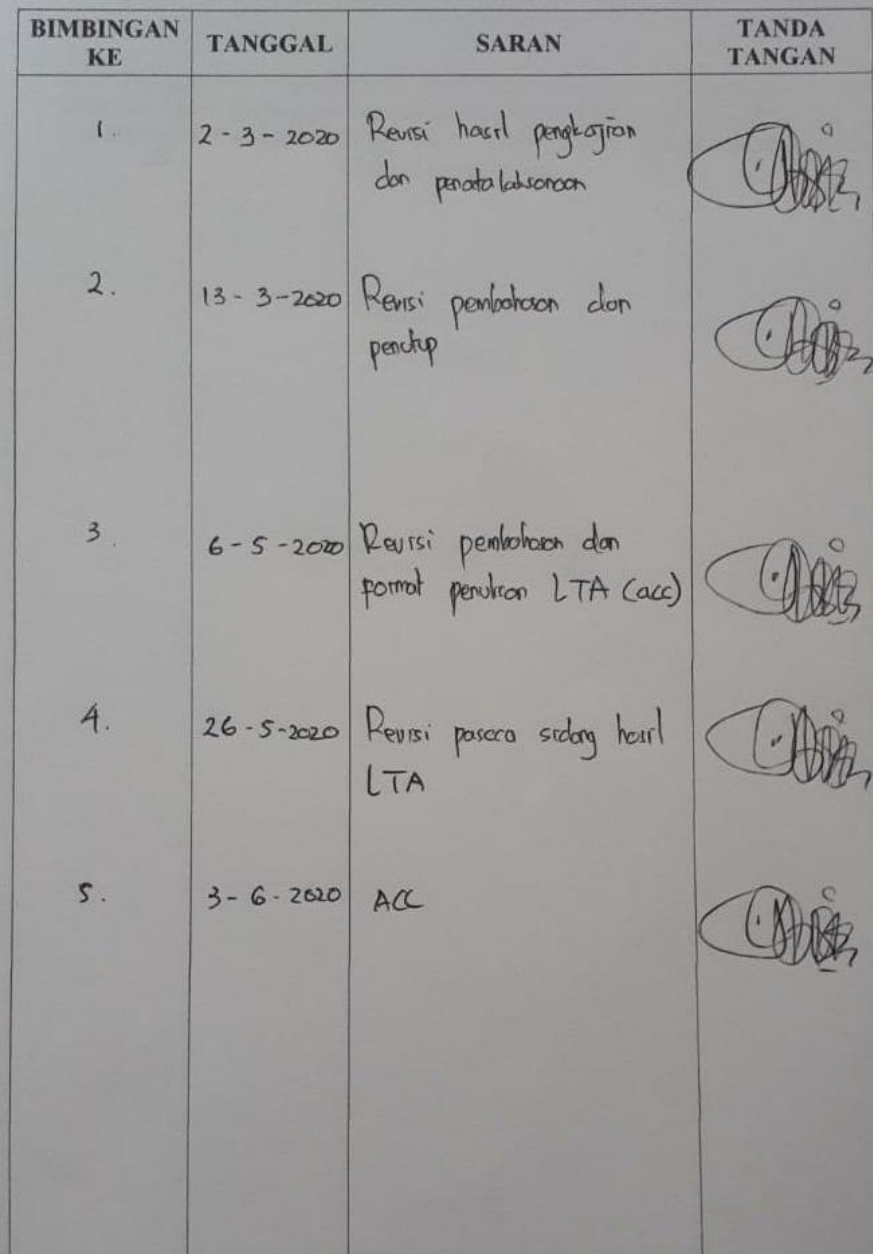 BIMBINGAN KE TANGGAL SARAN TANDA TANGAN
1. 2 - 3 - 2020 Revisi hasil pengkajian
dan penatalaksanaan
2. 13 - 3 - 2020 Revisi pembahasan dan
penutup
3. 6 - 5 - 2020 Revisi pembahasan dan
format penulisan LTA (acc)
4. 26 - 5 - 2020 Revisi pasca sidang hasil
LTA
5. 3 - 6 - 2020 ACC